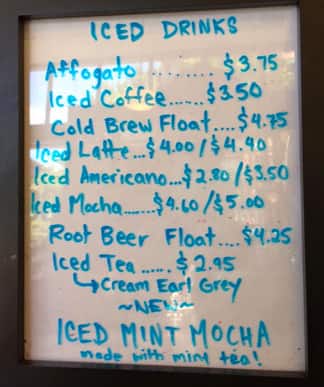 ICED DRINKS
Affogato ........ $3.75
Iced Coffee...... $3.50
Cold Brew Float.... $4.75
Iced Latte... $4.00/$4.40
Iced Americano... $2.80/$3.50
Iced Mocha....... $4.60/$5.00
Root Beer Float.... $4.25
Iced Tea...... $2.95
↳Cream Earl Grey
~NEW~
ICED MINT MOCHA
made with mint tea!